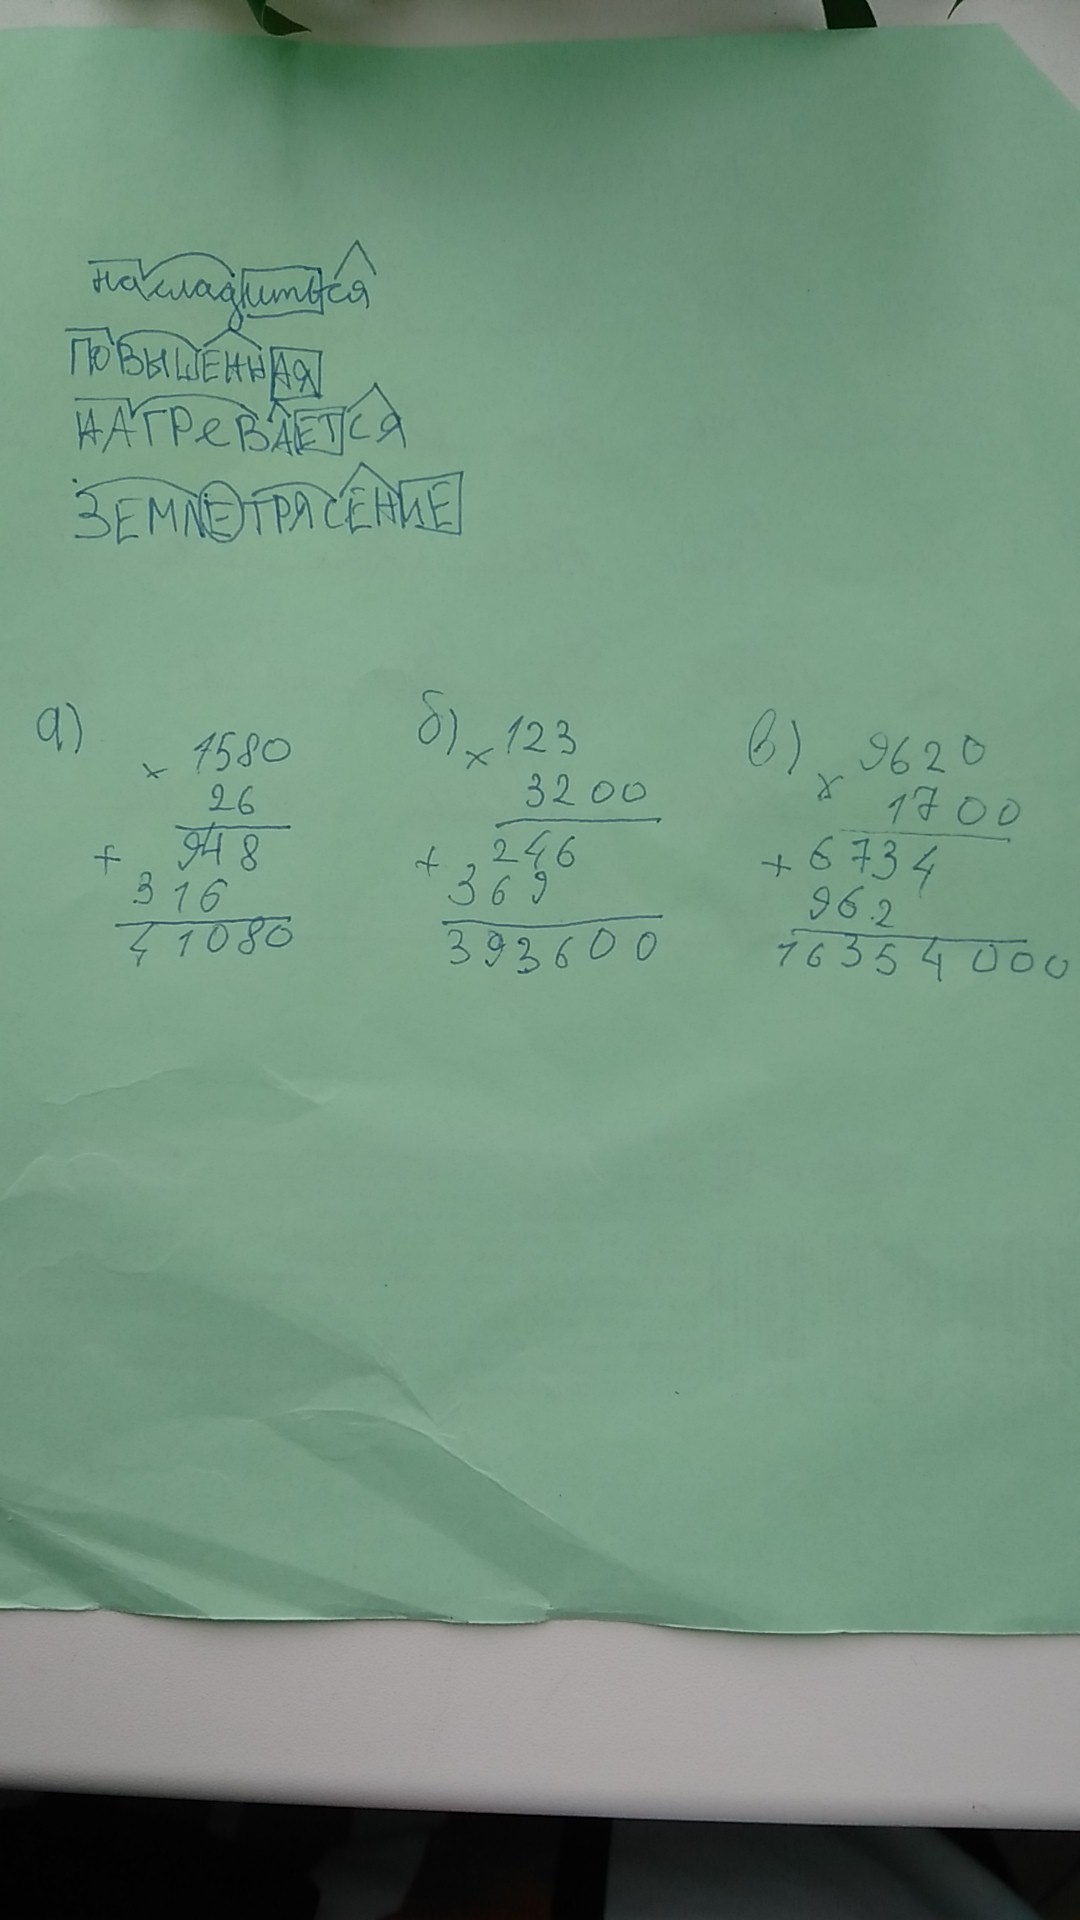 насладиться
ПОВЫШЕННАЯ
НАГРеВАЕТСЯ
ЗЕМЛЕТРЯСЕНИЕ
а)
× 1580
26
+ 948
316
41080
б)
× 123
3200
+ 246
369
393600
в)
× 9620
1700
+ 6734
962
16354000